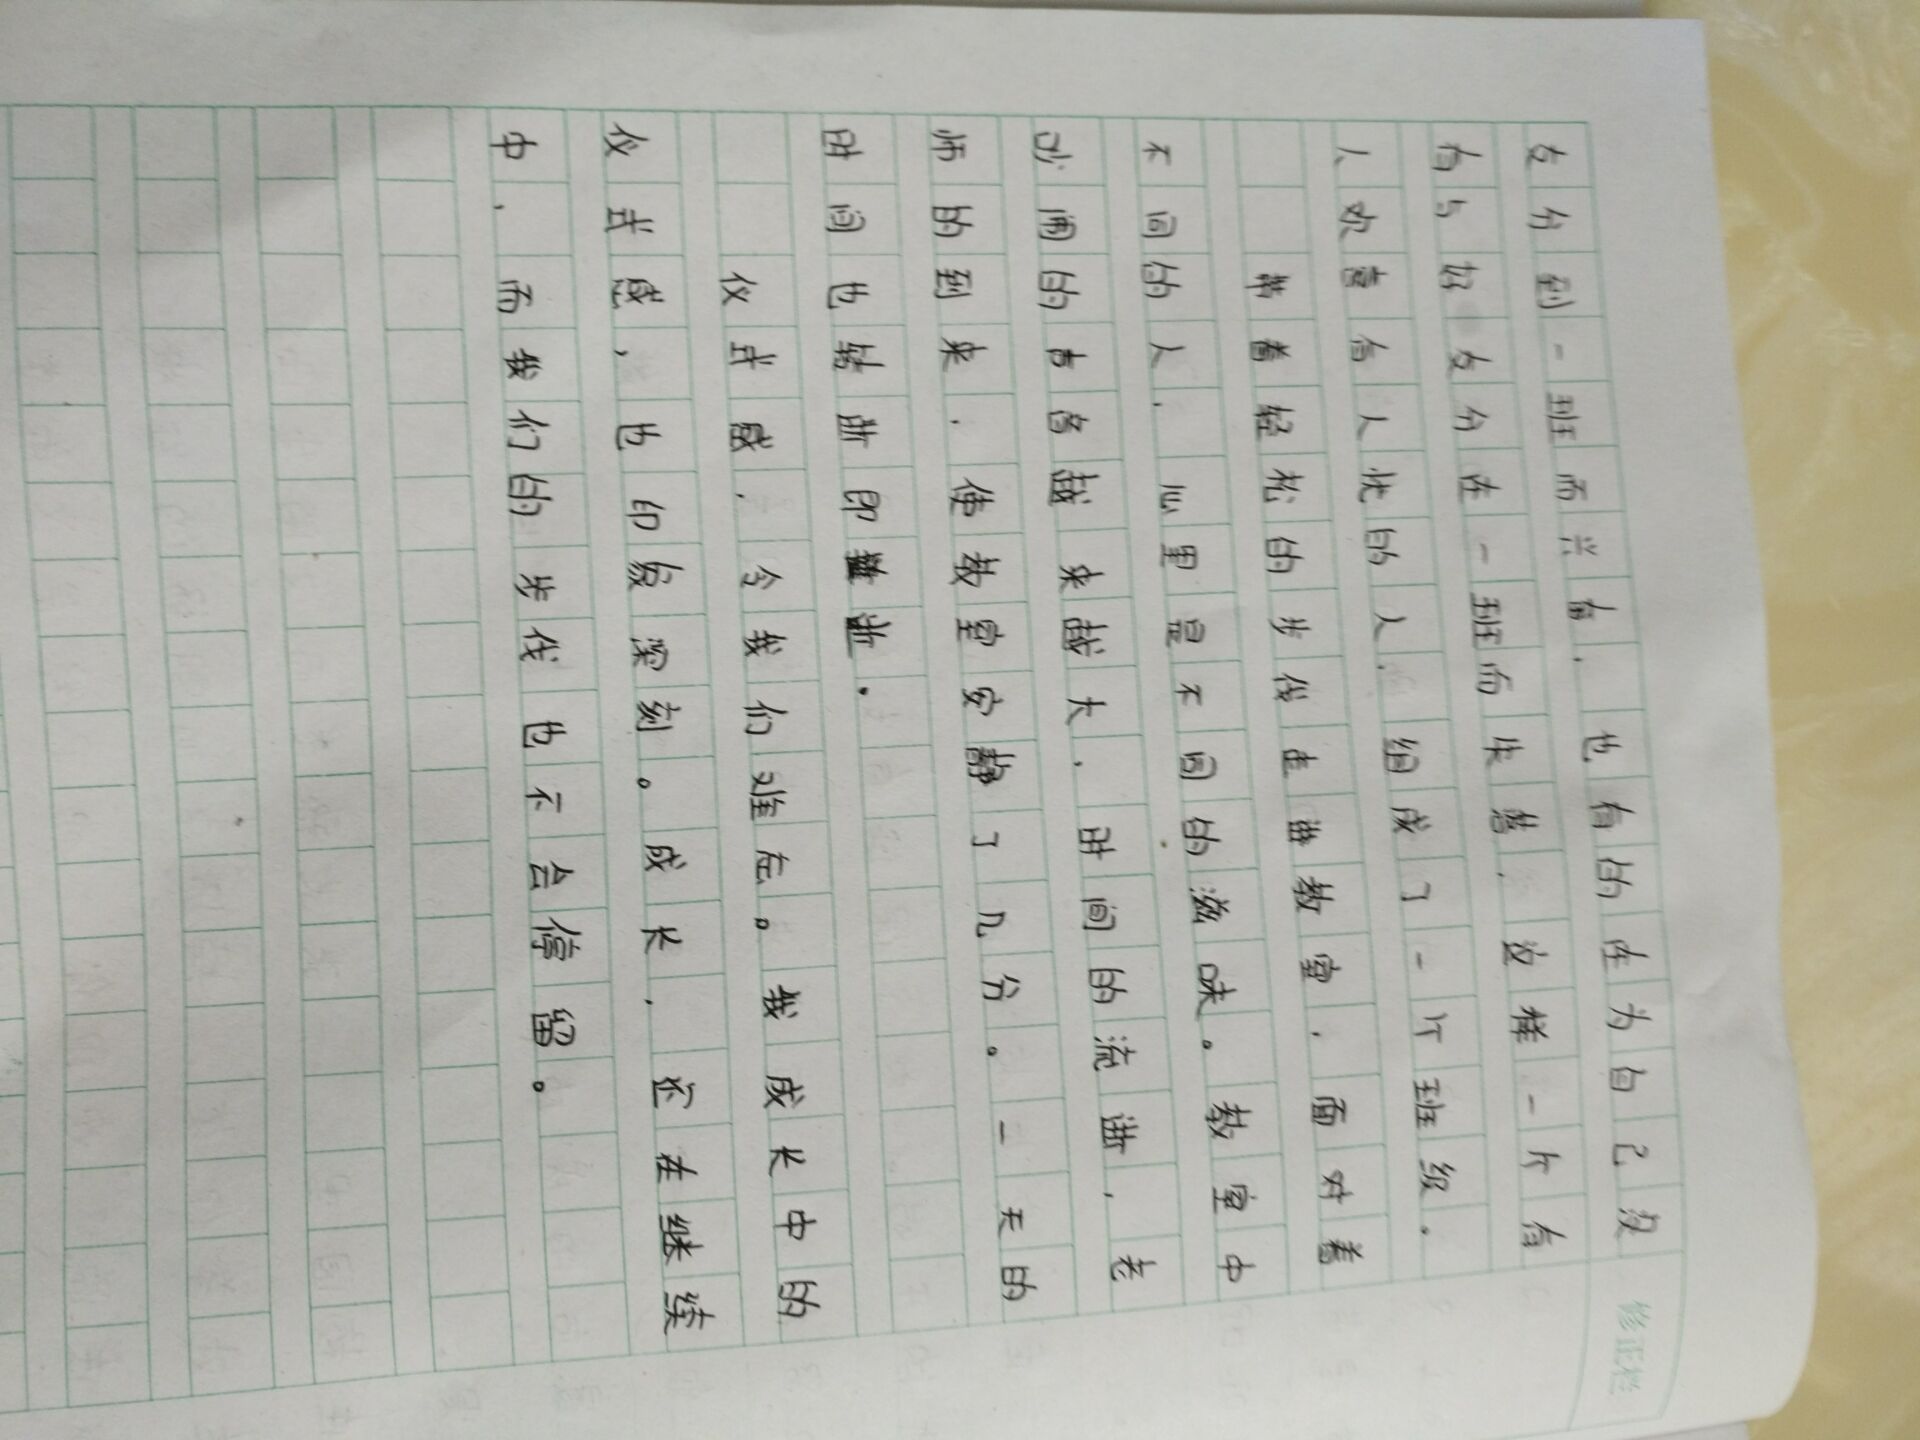 友分到一班而兴奋，也有的在为自己没
有与好友分在一班而失落，这样一个有
人欢喜有人忧的人，组成了一个班级。
带着轻松的步伐走进教室，面对着
不同的人，心里是不同的滋味。教室中
吵闹的声音越来越大，时间的流逝，老
师的到来，使教室安静了几分。一天的
时间也转瞬即逝。
仪式感，令我们难忘。我成长中的
仪式感，也印象深刻。成长，还在继续
中，而我们的步伐也不会停留。
修正栏